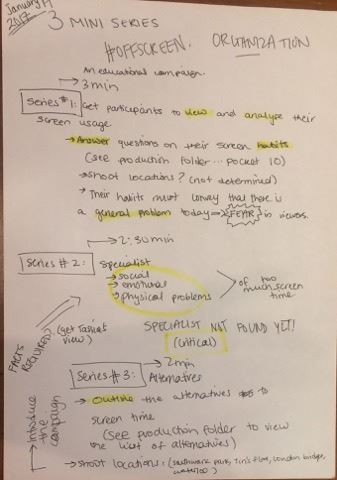 January 17
2017
3 MINI SERIES
#OFFSCREEN. ORGANIZATION
An educational campaign.
→ 3 min
Series #1: Get participants to view and analyse their
screen usage.
→ Answer questions on their screen habits
(see production folder... pocket 10)
→ shoot locations? (not determined)
→ Their habits must convey that there is
a general problem today → FEAR in viewers.
→ 2:30min
Series #2: Specialist
→ social
→ emotional
→ physical problems
> of too much screen time
FACTS REQUIRED? (get view)
SPECIALIST NOT FOUND YET!
(critical)
→ 2min
Series #3: Alternatives
→ Outline the alternatives to
screen time
(see production folder to view
the list of alternatives)
Introduce the campaign
→ shoot locations: (southwark park, flat, London bridge,
waterloo)